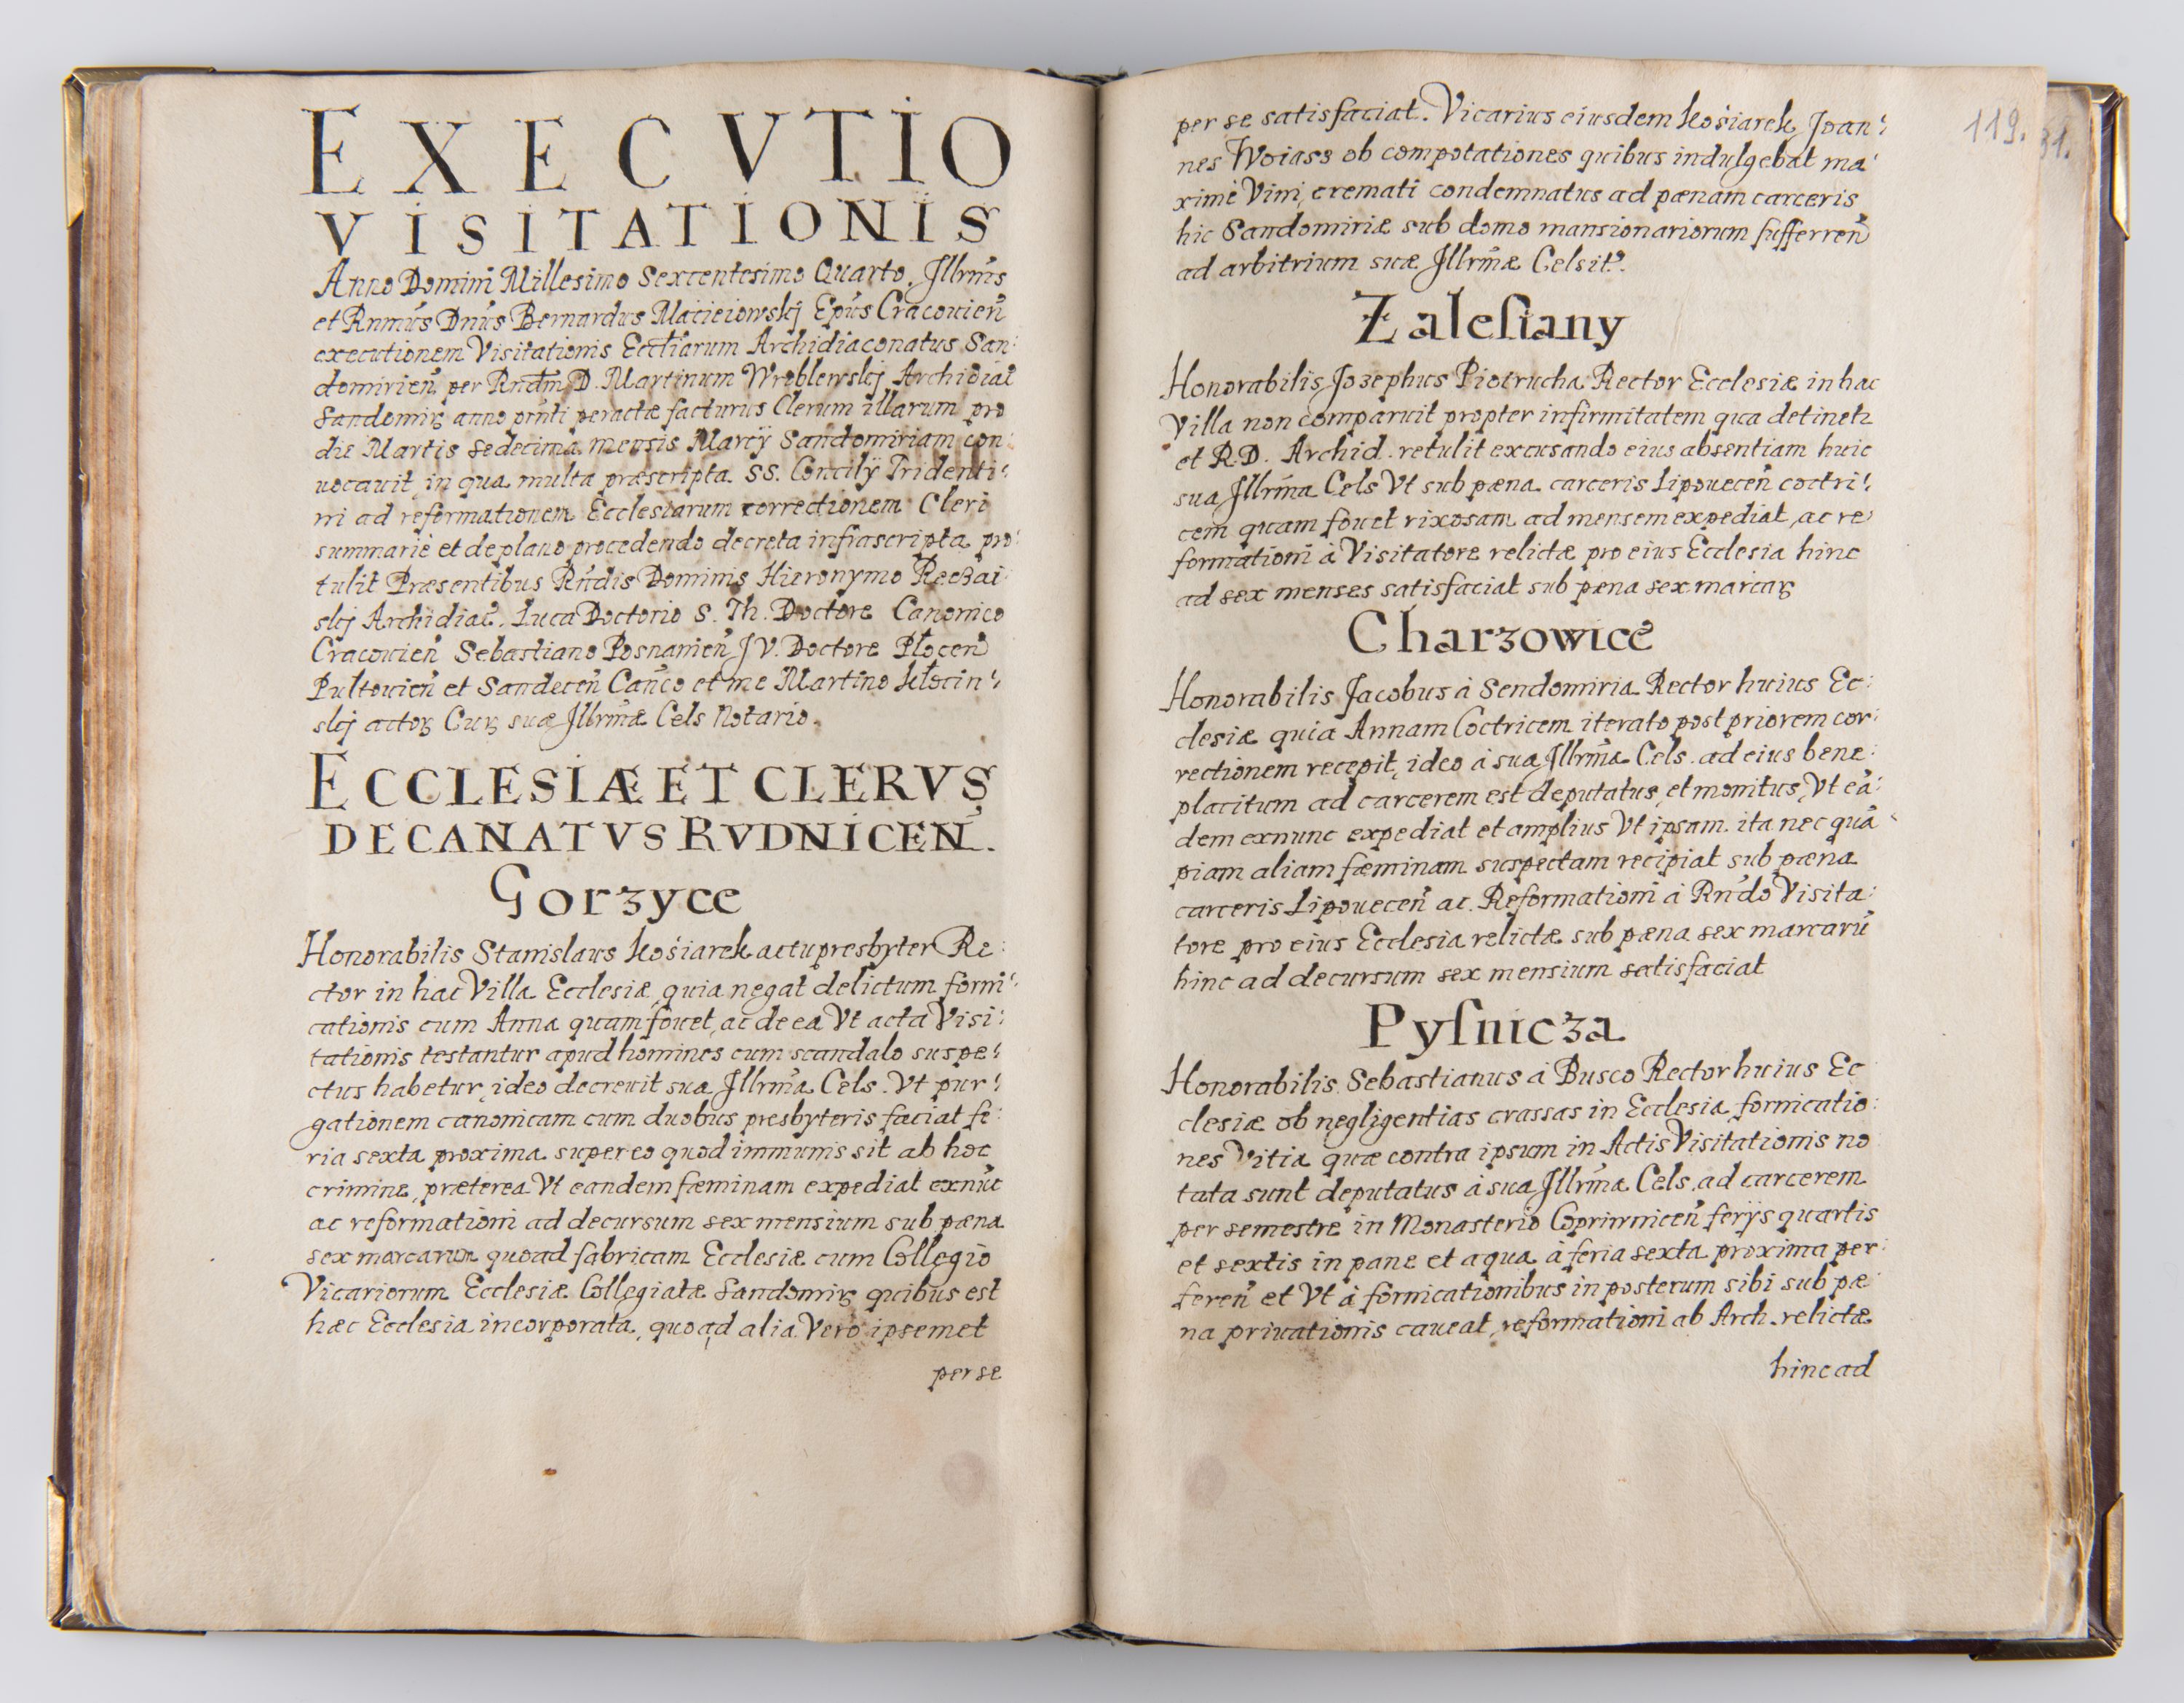 EXECVTIO
VISITATIONIS
Anno Domini Millesimo Sexcentesimo Quarto. Jllrm̃s
et Rnmus Dnus Bernardus Macieiowskj Ep̃us Cracouien̄
executionem Visitationis Eccłiarum Archidiaconatus San:
domirien̄ per Rndm̃ D. Martinum Wroblewskj Archidiac̄
Sandomirꝫ anno prñti peractæ facturus Clerum illarum pro
die Martis sedecima mensis Marcÿ Sandomiriam con:
uocauit, in qua multa præscripta SS. Concilÿ Tridenti:
ni ad reformationem Ecclesiarum correctionem Cleri
summariè et de plano procedendo decreta infrascripta pro:
tulit Præsentibus Rñdis Dominis Hieronymo Reczai:
skj Archidiac̄. Luca Doctorio S. Th. Doctore Canonico
Cracouien̄ Sebastiano Posnanien̄ J V. Doctore Płocen̄
Pultouien̄ et Sandecen̄ Canc̃o et me Martino Kłocin:
skj actorꝫ Curꝫ suæ Jllrm̃æ Cels Notario.
ECCLESIÆ ET CLERVS
DECANATVS RVDNICEN̄.
Gorzyce
Honorabilis Stanislaus Kośiarek actu presbyter Re:
ctor in hac Villa Ecclesiæ, quia negat delictum forni:
cationis cum Anna quam fouet, ac de ea Vt acta Visi:
tationis testantur apud homines cum scandalo suspe:
ctus habetur, ideo decreuit sua Jllrm̃a Cels. Vt pur:
gationem canonicam cum duobus presbyteris faciat fe:
ria sexta proxima super eo quod immunis sit ab hoc
crimine, præterea Vt eandem fæminam expediat exnūc
ac reformationi ad decursum sex mensium sub pæna
sex marcarum quoad fabricam Ecclesiæ cum Collegio
Vicariorum Ecclesiæ Collegiatæ Sandomirꝫ quibus est
hæc Ecclesia incorporata, quoad alia Vero ipsemet
per se
119. 31.
per se satisfaciat. Vicarius eiusdem Kośiarek Joan:
nes Woiass ob compotationes quibus indulgebat ma:
ximè Vini cremati condemnatus ad pænam carceris
hic Sandomiriæ sub domo mansionariorum sufferren̄
ad arbitrium suæ Jllrm̃æ Celsit⁹.
Zalesiany
Honorabilis Josephus Piotrucha Rector Ecclesiæ in hac
Villa non comparuit propter infirmitatem qua detinetꝛ
et R.D. Archid. retulit excusando eius absentiam huic
sua Jllrm̃a Cels Vt sub pæna carceris Lipouecen̄ coctri:
cem quam fouet rixosam ad mensem expediat, ac re:
formationi à Visitatore relictæ pro eius Ecclesia hinc
ad sex menses satisfaciat sub pæna sex marcarꝫ
Charzowice
Honorabilis Jacobus à Sendomiria Rector huius Ec:
clesiæ quia Annam Coctricem iterato post priorem cor:
rectionem recepit, ideo à sua Jllrm̃a Cels. ad eius bene:
placitum ad carcerem est deputatus, et monitus, Vt eā:
dem exnunc expediat et amplius Vt ipsam ita nec quā
piam aliam fæminam suspectam recipiat sub pæna
carceris Lipouecen̄ ac Reformationi à Rndo Visita:
tore pro eius Ecclesia relictæ sub pæna sex marcarū
hinc ad decursum sex mensium satisfaciat
Pysnicza
Honorabilis Sebastianus à Busco Rector huius Ec
clesiæ ob negligentias crassas in Ecclesia, fornicatio:
nes Vitia quæ contra ipsum in Actis Visitationis no
tata sunt deputatus à sua Jllrm̃a Cels. ad carcerem
per semestre in Monasterio Coprivnicen̄ ferÿs quartis
et sextis in pane et aqua, à feria sexta proxima per:
feren̄ et Vt à fornicationibus in posterum sibi sub pæ
na priuationis caueat, reformationi ab Arch. relictæ
hinc ad